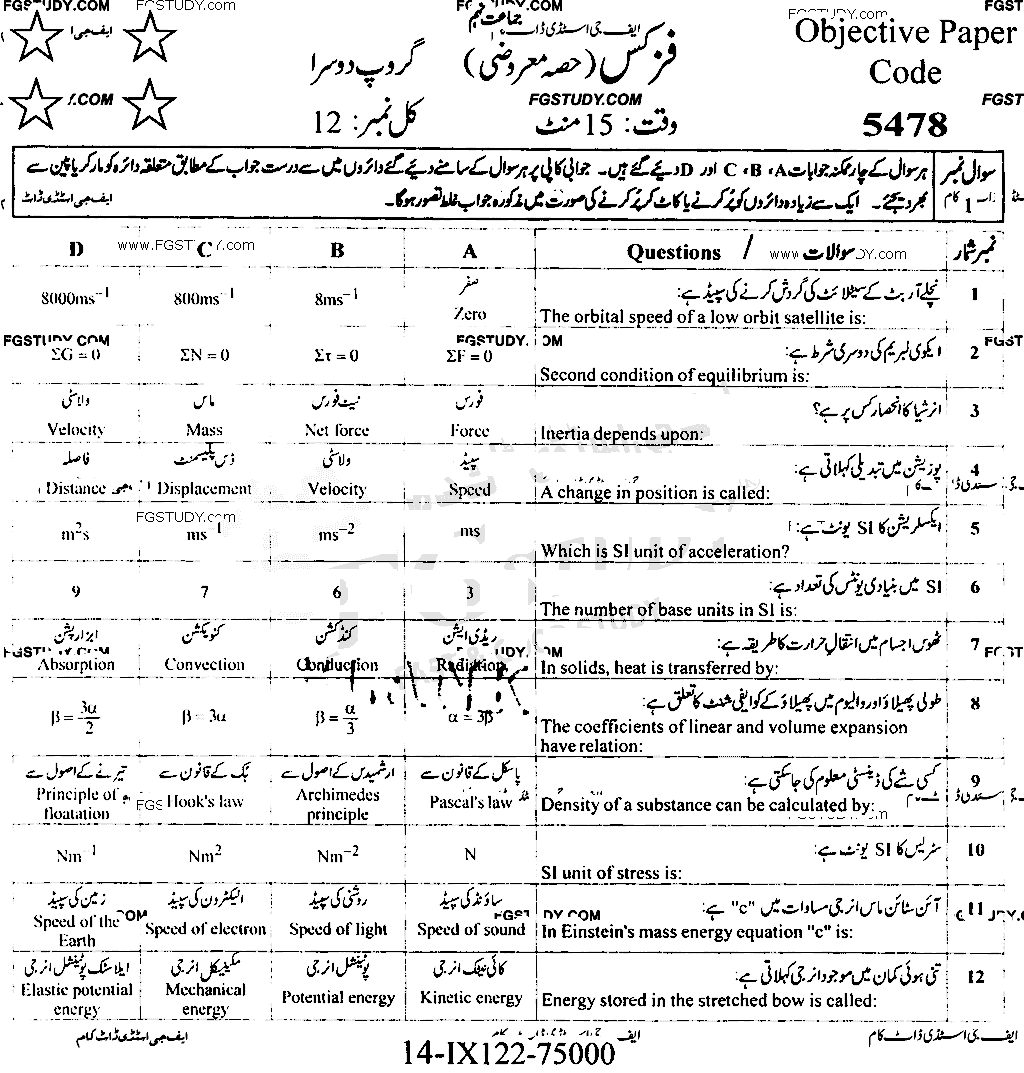 FGSTUDY.COM
FGSTUDY.COM
FGSTUDY.com
FGST
ایف جی اسٹڈی ڈاٹ
جماعت نہم
Objective Paper
Code
5478
فزکس (حصہ معروضی)
گروپ دوسرا
.COM
FGSTUDY.COM
FGST
وقت: 15 منٹ
کل نمبر: 12
سوال نمبر 1
ہر سوال کے چار ممکنہ جوابات A، B، C اور D دیئے گئے ہیں۔ جوابی کاپی پر ہر سوال کے سامنے دیئے گئے دائروں میں سے درست جواب کے مطابق متعلقہ دائرہ کو مارکر یا پین سے
بھر دیجئے۔ ایک سے زیادہ دائروں کو پُر کرنے یا کاٹ کر پُر کرنے کی صورت میں مذکورہ جواب غلط تصور ہوگا۔
ایف جی اسٹڈی ڈاٹ
D C B A Questions / سوالات نمبر شمار
www.FGST Y.com
www DY.com
1 نچلے آربٹ کے سیٹلائٹ کی گردش کرنے کی سپیڈ ہے:
The orbital speed of a low orbit satellite is:
8000ms⁻¹ 800ms⁻¹ 8ms⁻¹ صفر
Zero
FGSTUDY.COM
FGSTUDY. OM
FGST
2 ایکوی لبریم کی دوسری شرط ہے:
Second condition of equilibrium is:
ΣG = 0 ΣN = 0 Στ = 0 ΣF = 0
3 انرشیا کا انحصار کس پر ہے؟
Inertia depends upon:
ولاسٹی ماس نیٹ فورس فورس
Velocity Mass Net force Force
4 پوزیشن میں تبدیلی کہلاتی ہے:
A change in position is called:
فاصلہ ڈس پلیسمنٹ ولاسٹی سپیڈ
Distance Displacement Velocity Speed
FGSTUDY.com
5 ایکسلریشن کا SI یونٹ ہے:
Which is SI unit of acceleration?
m²s ms⁻¹ ms⁻² ms
6 SI میں بنیادی یونٹس کی تعداد ہے:
The number of base units in SI is:
9 7 6 3
7 ٹھوس اجسام میں انتقالِ حرارت کا طریقہ ہے:
In solids, heat is transferred by:
ابزارپشن کنویکشن کنڈکشن ریڈی ایشن
Absorption Convection Conduction Radiation
8 طولی پھیلاؤ اور والیوم میں پھیلاؤ کے کوایفی شنٹ کا تعلق ہے:
The coefficients of linear and volume expansion
have relation:
β = 3α/2 β = 3α β = α/3 α = 3β
9 کسی شے کی ڈینسٹی معلوم کی جاسکتی ہے:
Density of a substance can be calculated by:
تیرنے کے اصول سے ہک کے قانون سے ارشمیدس کے اصول سے پاسکل کے قانون سے
Principle of floatation Hook's law Archimedes principle Pascal's law
10 سٹریس کا SI یونٹ ہے:
SI unit of stress is:
Nm⁻¹ Nm² Nm⁻² N
11 آئن سٹائن ماس انرجی مساوات میں "c" ہے:
In Einstein's mass energy equation "c" is:
زمین کی سپیڈ الیکٹرون کی سپیڈ روشنی کی سپیڈ ساؤنڈ کی سپیڈ
Speed of the Earth Speed of electron Speed of light Speed of sound
12 تنی ہوئی کمان میں موجود انرجی کہلاتی ہے:
Energy stored in the stretched bow is called:
ایلاسٹک پوٹینشل انرجی مکینیکل انرجی پوٹینشل انرجی کائی نیٹک انرجی
Elastic potential energy Mechanical energy Potential energy Kinetic energy
ایف جی اسٹڈی ڈاٹ کام
ایف جی اسٹڈی ڈاٹ کام
14-IX122-75000